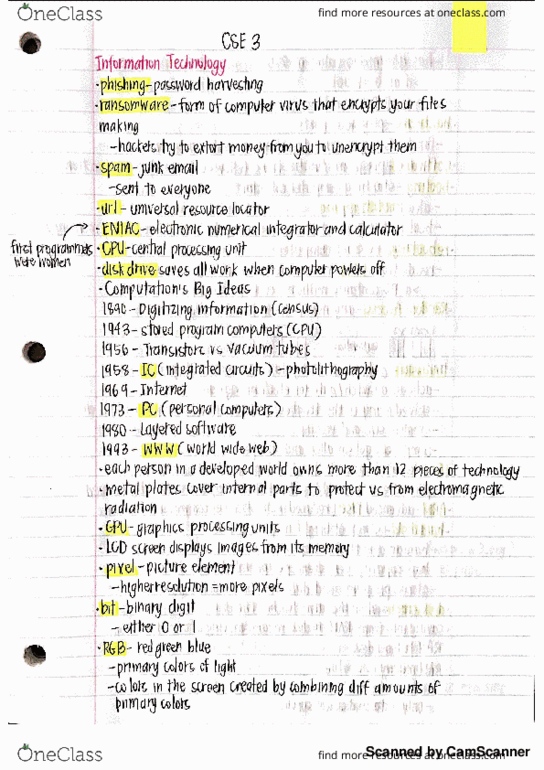 OneClass
find more resources at oneclass.com
CSE 3
Information Technology
·phishing-password harvesting
·ransomware-form of computer virus that encrypts your files
making
-hackers try to extort money from you to unencrypt them
·spam-junk email
-sent to everyone
·url-universal resource locator
·ENIAC-electronic numerical integrator and calculator
first programmers
were women
·CPU-central processing unit
·disk drive saves all work when computer powers off
·Computation's Big Ideas
1890-Digitizing information (census)
1943-stored program computers (CPU)
1956-Transistors vs Vacuum tubes
1958-IC (integrated circuits)-photolithography
1969-Internet
1973-PC (personal computers)
1980-Layered software
1993-WWW (world wide web)
·each person in a developed world owns more than 12 pieces of technology
·metal plates cover internal parts to protect us from electromagnetic
radiation
·GPU-graphics processing units
·LCD screen displays images from its memory
·pixel-picture element
-higher resolution=more pixels
·bit-binary digit
-either 0 or 1
·RGB-red green blue
-primary colors of light
-colors in the screen created by combining diff amounts of
primary colors
OneClass
find more resources at oneclass.com
Scanned by CamScanner